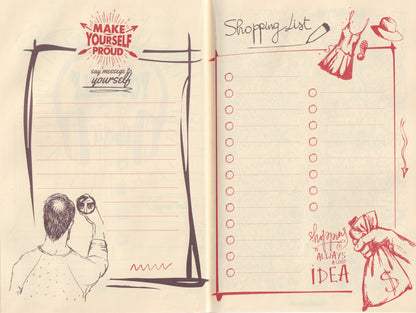 MAKE
YOURSELF
PROUD
say message to
yourself
Shopping List
shopping
is
ALWAYS
A GOOD
IDEA
$